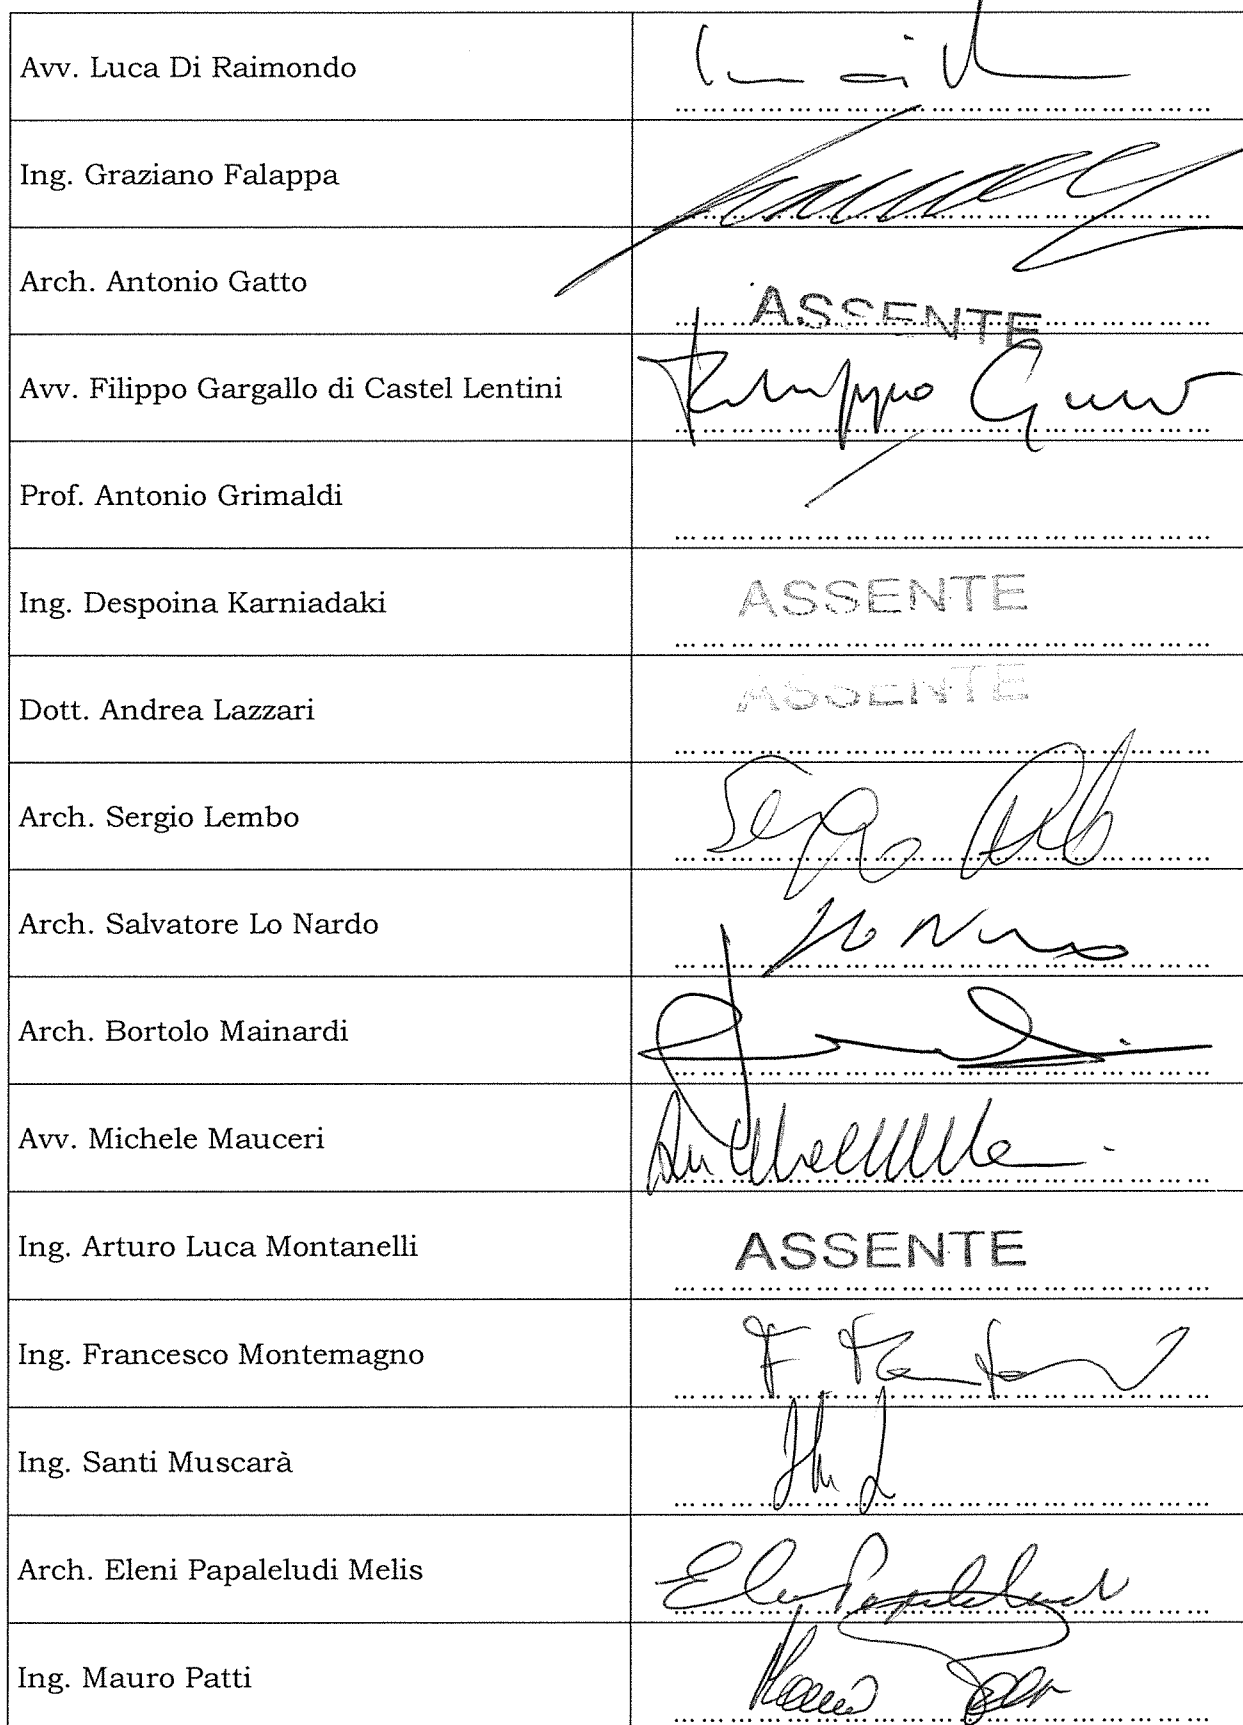 Avv. Luca Di Raimondo
Ing. Graziano Falappa
Arch. Antonio Gatto
ASSENTE
Avv. Filippo Gargallo di Castel Lentini
Filippo
Prof. Antonio Grimaldi
Ing. Despoina Karniadaki
ASSENTE
Dott. Andrea Lazzari
ASSENTE
Arch. Sergio Lembo
Sergio
Arch. Salvatore Lo Nardo
Arch. Bortolo Mainardi
Avv. Michele Mauceri
Ing. Arturo Luca Montanelli
ASSENTE
Ing. Francesco Montemagno
Ing. Santi Muscarà
Arch. Eleni Papaleludi Melis
Ing. Mauro Patti